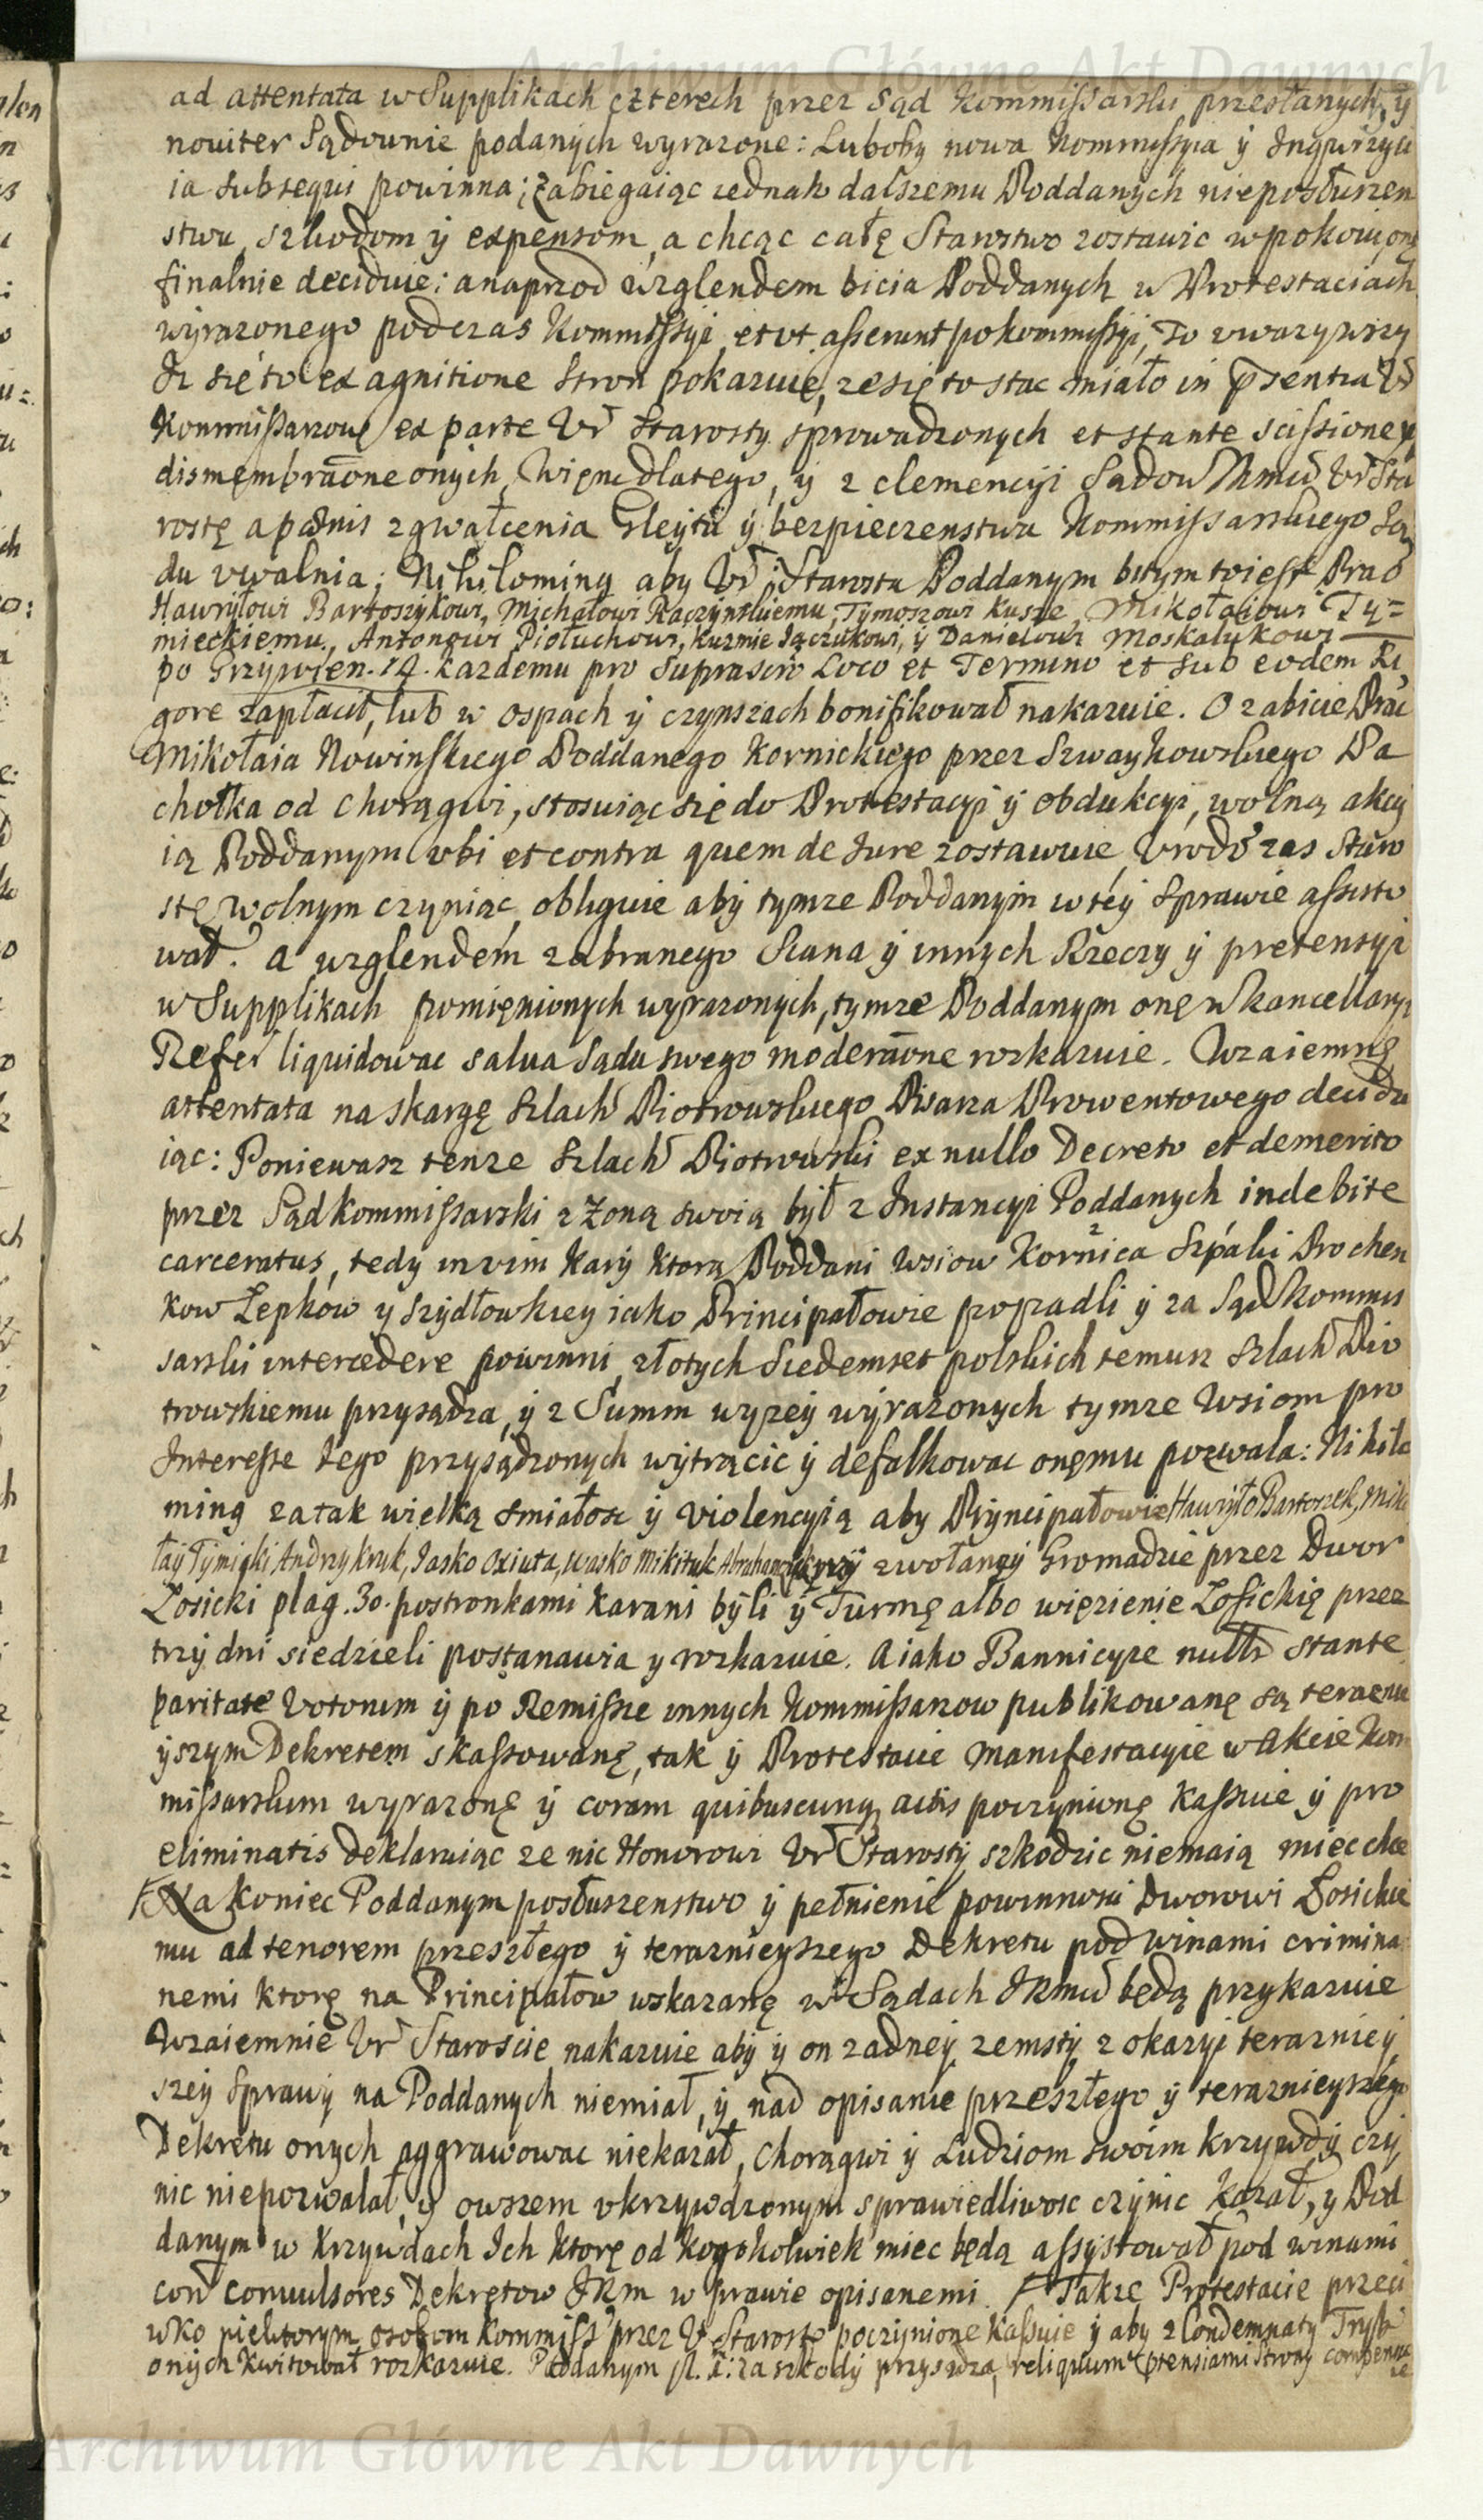 Archiwum Główne Akt Dawnych
ad attentata w Supplikach czterech przez Sąd Kommissarski przesłanych, y
nouiter Sądownie podanych wyrazone: Luboby nowa Kommissyia y Inqwizyci
ia subsequi powinna; Zabiegaiąc iednak dalszemu Poddanych nieposłuszen
stwu, szkodom y expensom, a chcąc całę Starostwo zostawic w pokoiu, onę
finalnie deciduie: a naprzod wzglendem bicia Poddanych w Protestaciach
wyrazonego podczas Kommissyi et vt asserunt po kommissyi, To vwazywszy
Iz się to ex agnitione Stron pokazuie, ze się to stac miało in pñsentia Vr
Kommissarzow ex parte Vr Starosty sprowadzonych et stante scissione et
dismembraõne onych, Więnc dlatego, y z clemencyi Sądow IKmci Vr Sta
rostę a pœnis zgwałcenia Gleytu y bezpieczenstwa Kommissarskiego Są
du vwalnia; Nihilominq aby Vr Starosta Poddanym bitym to iest Prac
Hawryłowi Bartoszykowi, Michałowi Raczynskiemu, Tymoszowi Kusze, Mikołaiowi Ty=
mieckiemu, Antonowi Piołuchowi, Kuzmie Jączukowi, y Danielowi Moskalukowi
po Grzywien. 14. kazdemu pro suprascrip Loco et Termino et sub eodem Ri
gore zapłacił, lub w ospach y czynszach bonifikował nakazuie. O zabicie Prac
Mikołaia Nowinskiego Poddanego Kornickiego przez Szwaykowskiego Pa
chołka od Chorągwi, stosuiąc się do Protestacyi y obdukcyi, wolną akcy
ią Poddanym vbi et contra quem de Iure zostawuie, Vrodz zas Staro
stę wolnym czyniąc, obliguie aby tymze Poddanym w tey Sprawie assisto
wał. a wzglendem zabranego Siana y innych Rzeczy y pretensyi
w Supplikach pomięnionych wyrazonych, tymze Poddanym onę w kancellaryi
Refer liquidowac salua Sądu swego moderaõne rozkazuie. Wzaiemnę
attentata na skargę Szlach Piotrowskiego Pisarza Prowentowego decidu
iąc: Poniewasz tenze Szlach Piotrowski ex nullo Decreto et demerito
przez Sąd kommissarski z Zoną swoią był z Instancyi Poddanych indebite
carceratus, tedy in vim kary ktorą Poddani wsiow Kornica Szpaki Prochen
kow Łepkow y Szydłowkiey iako Principałowie popadli y za Sąd kommis
sarski intercedere powinni, złotych Siedemset polskich temusz Szlach Pio
trowskiemu przysądza, y z Summ wyzey wyrazonych tymze wsiom pro
Interesse Iego przysądzonych wytrącic y defalkowac onęmu pozwala: Nihilo
minq za tak wielką smiałosc y violencyią aby Pryncipałowie Hawryło Bartoszek, Miko
łay Tymięki, Andrzy Kryk, Jasko Oxiuta, Wasko Mikituk Abrahamczyk przy zwołaney Gromadzie przez Dwor
Łosicki plag. 30. postronkami karani byli y Turmę albo więzienie Łosickię przez
trzy dni siedzieli postanawia y rozkazuie. A iako Bannicyie nullr stante
paritate Votorum y po Remissie innych Kommissarzow publikowanę są teraznie
yszym Dekretem skassowanę, tak y Protestacie Manifestacyie w Akcie Kom
missarskim wyrazonę y coram quibuscunq actis poczynionę kassuie y pro
eliminatis deklaruiąc ze nic Honorowi Vr Starosty szkodzic niemaią miec chce
Na koniec Poddanym posłuszenstwo y pełnienie powinnosci Dworowi Łosickie
mu ad tenorem przeszłego y teraznieyszego Dekretu pod winami crimina
nemi ktorę na Principałow wskazanę w Sądach IKmci będą przykazuie
Wzaiemnie Vr Staroscie nakazuie aby y on zadney zemsty z okazyi terazniey
szey Sprawy na Poddanych niemiał, y nad opisanie przeszłego y teraznieyszego
Dekretu onych aggrawowac niekazał, Chorągwi y Ludziom swoim krzywdy czy
nic niepozwalał, y owszem vkrzywdzonym sprawiedliwosc czynic kazał, y Pod
danym w krzywdach Ich ktorę od kogokolwiek miec będą assystował pod winami
con conuulsores Dekretow IKm w prawie opisanemi. Takze Protestacie przeci
wko niektorym osobom kommiss przez Vr Starostę poczynionę kassuie y aby z Condemnaty Tryb
onych kwitował rozkazuie. Poddanym za szkody przysądza, reliquum ptensiami Strony compensu
ie
Archiwum Główne Akt Dawnych